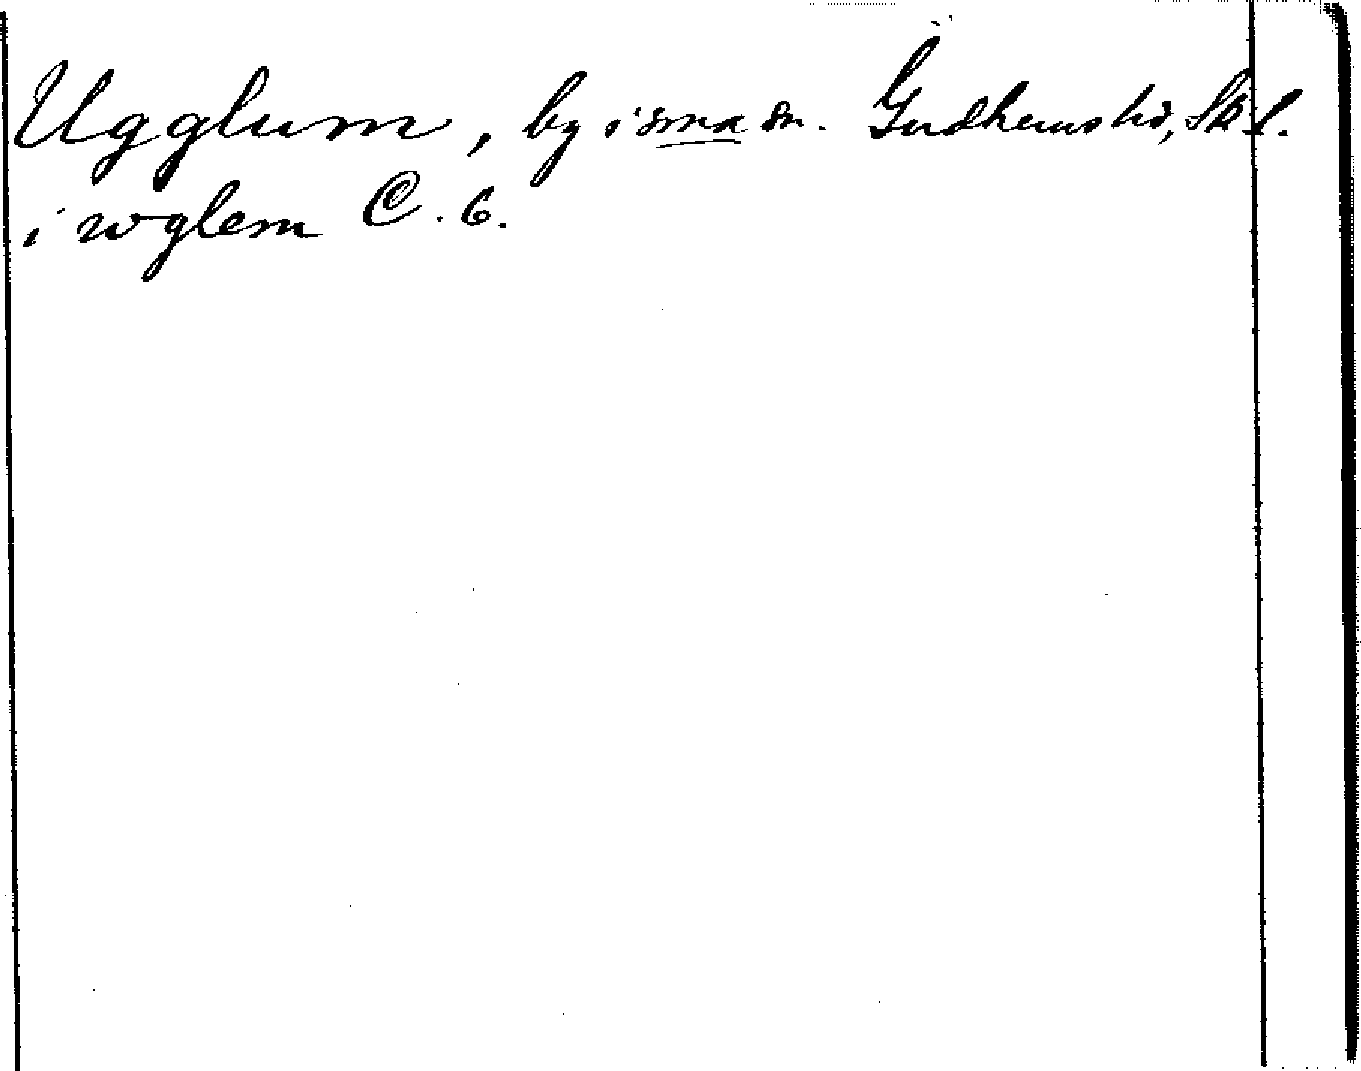 Ugglum, by i sma sn. Gudhems hd, Sk.l.
i wglem C. 6.